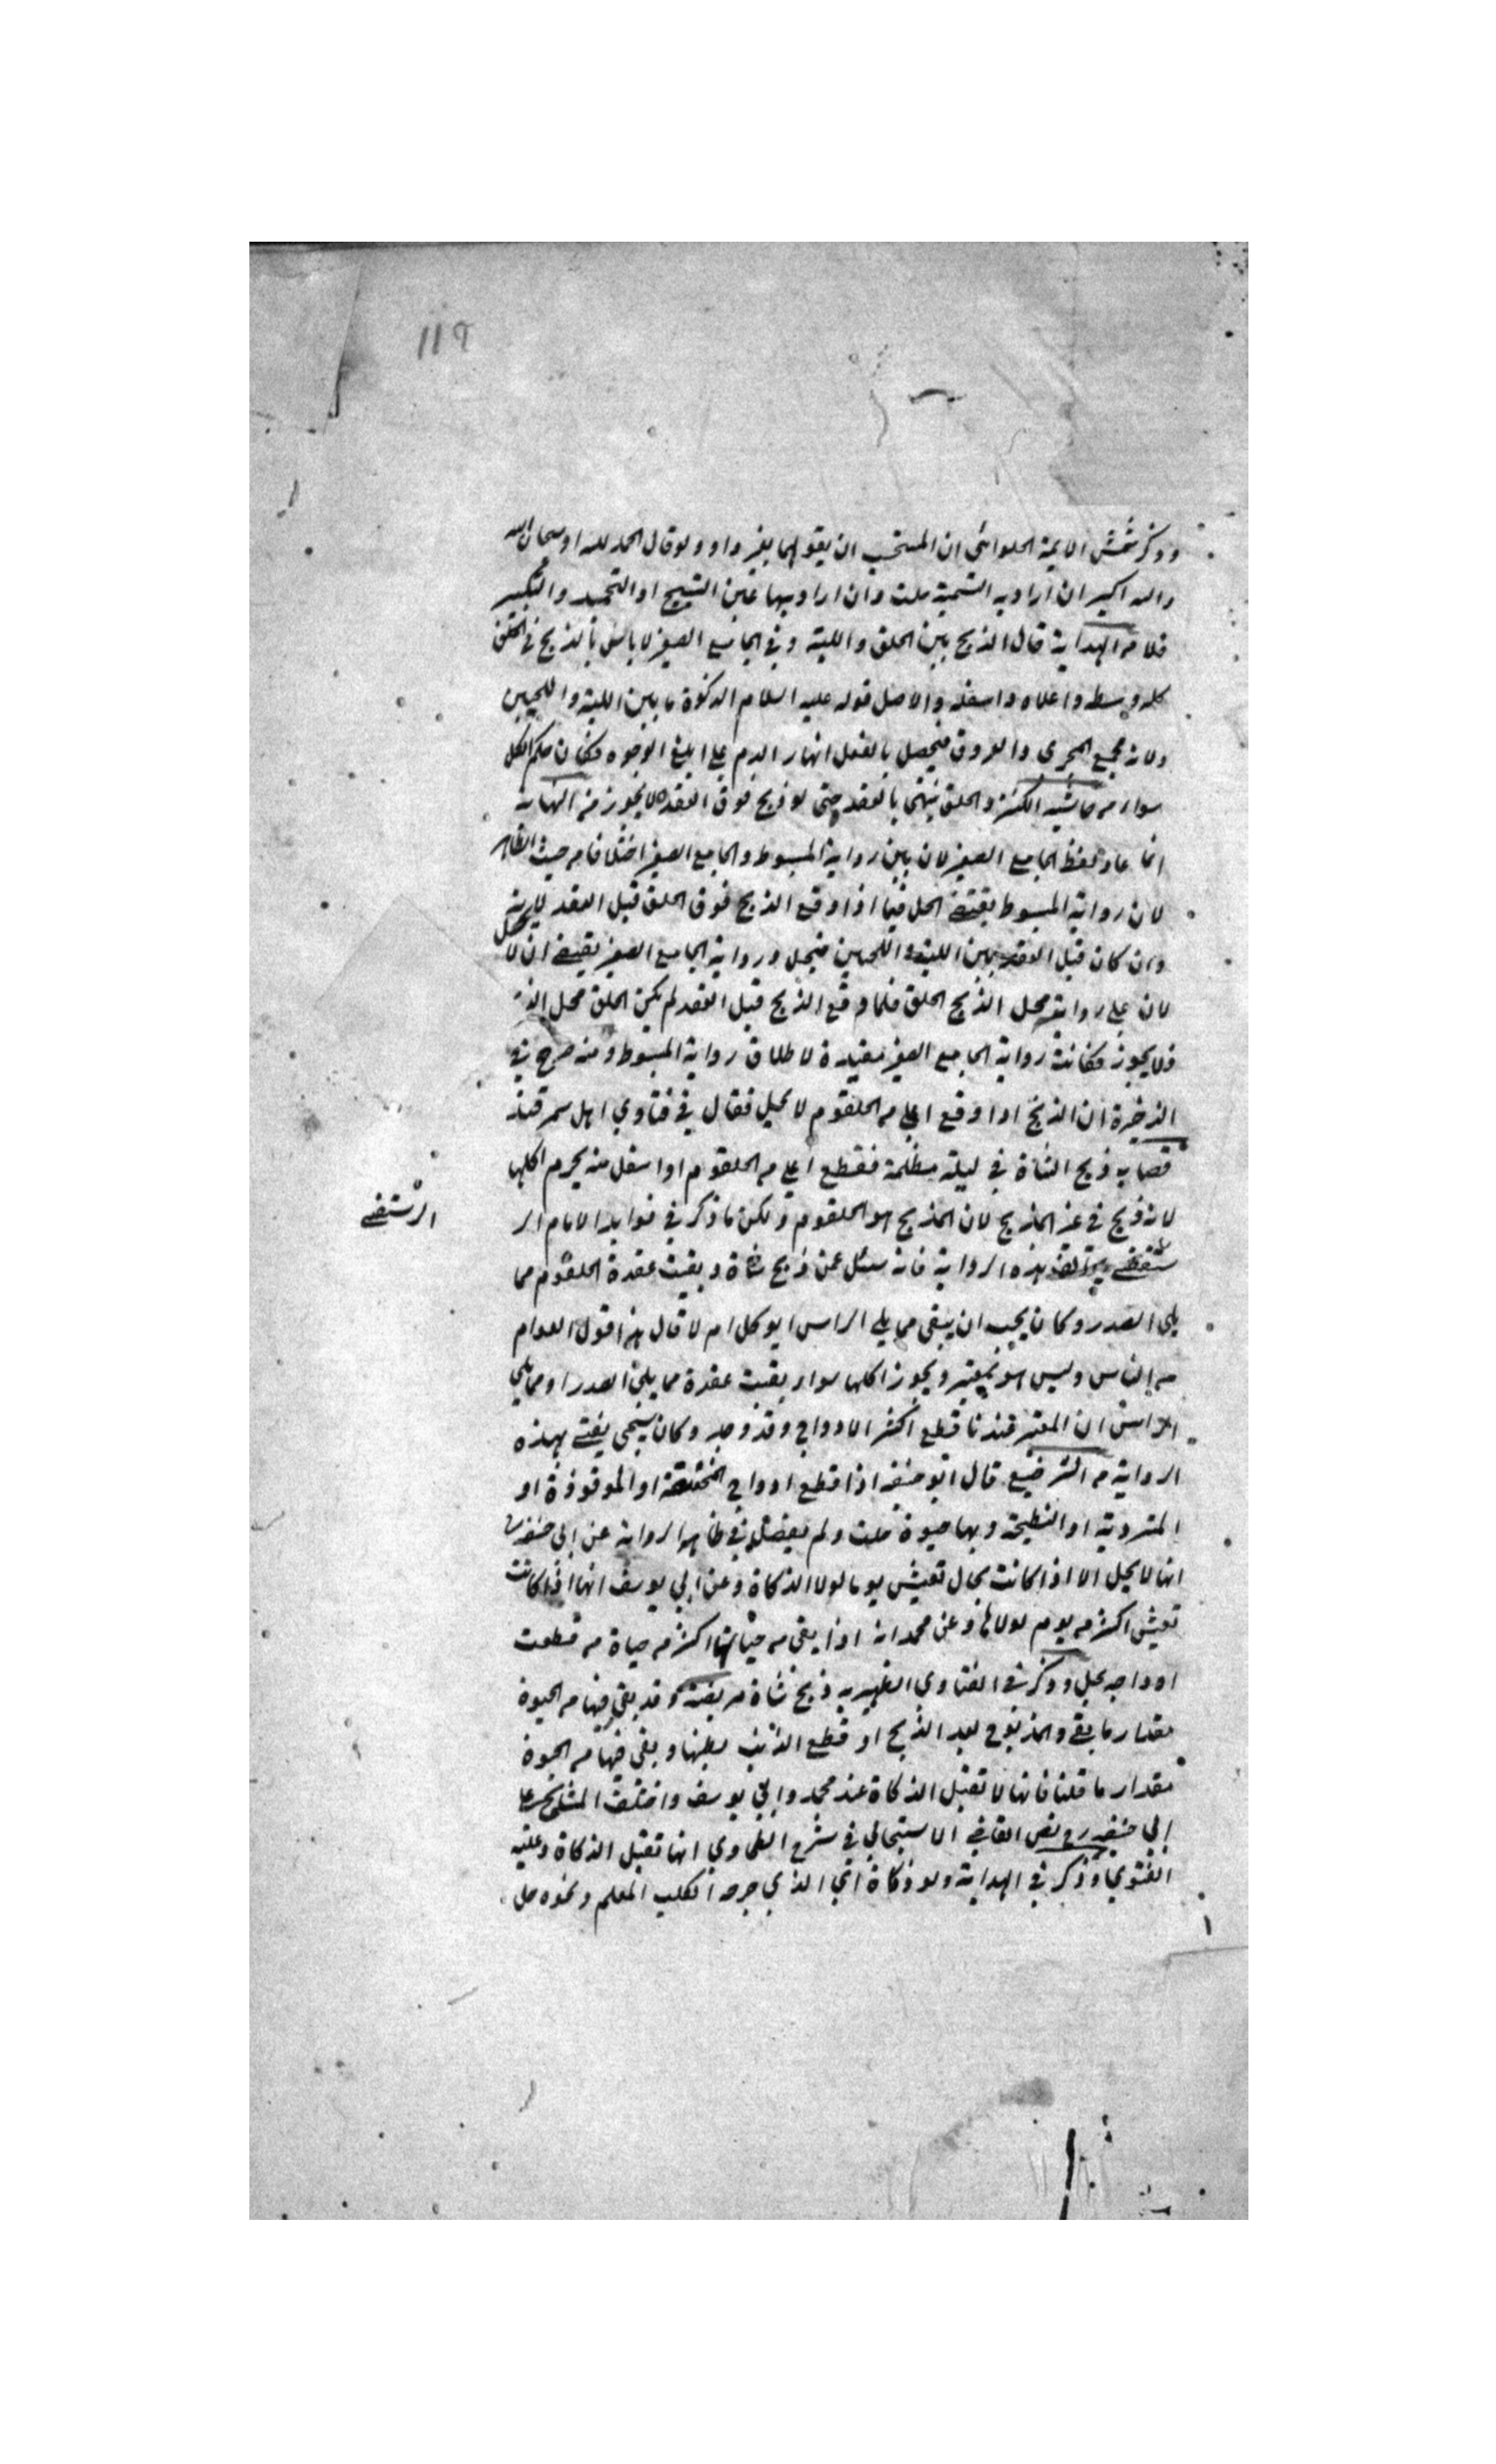 119
وذكر شمش الايمة الحلوانى ان المستحب ان يقولهما بغير واو ولو قال الحمد لله او سبحان الله
والله اكبر ان اراد به التسمية حلت وان اراد بها عين التسبيح او التحميد والتكبير
فلا من الهداية قال الذبح بين الحلق واللبة وفى الجامع الصغير لا باس بالذبح فى الحلق
كله وسطه واعلاه واسفله والاصل قوله عليه السلام الذكوة ما بين اللبة واللحيين
ولانه مجمع المجرى والعروق فيحصل بالفعل انهار الدم على ابلغ الوجوه فكان حكم الكل
سواء من حاشية الكنز والحلق ينتهى بالعقد حتى لو ذبح فوق العقدة لا يجوز من النهاية
انما عاد لفظ الجامع الصغير لان بين رواية المبسوط والجامع الصغير اختلافا من حيث الظاهر
لان رواية المبسوط يقتضى الحل فيما اذا وقع الذبح فوق الحلق قبل العقد لانه
وان كان قبل العقد بين اللبة واللحيين فيحل ورواية الجامع الصغير يقتضى ان لا يحل
لان على روايته محل الذبح الحلق فلما وقع الذبح قبل العقد لم يكن الحلق محل الذ
فلا يجوز فكانت رواية الجامع الصغير مقيدة لاطلاق رواية المبسوط ومنه صرح فى
الذخيرة ان الذبح اذا وقع اعلى من الحلقوم لا يحل فقال فى فتاوى اهل سمرقند
قصاب ذبح الشاة فى ليلة مظلمة فقطع اعلى من الحلقوم او اسفل منه يحرم اكلها
لانه ذبح فى غير المذبح لان المذبح هو الحلقوم ولكن ما ذكر فى فوايد الامام الر
الرستغفى
ستغفى يخالف هذه الرواية فانه سئل عمن ذبح شاة وبقيت عقدة الحلقوم مما
يلى الصدر وكان يجب ان يبقى مما يلى الراس ايوكل ام لا قال هذا قول العوام
من الناس وليس هو بمعتبر ويجوز اكلها سواء بقيت عقدة مما يلى الصدر او مما يلى
الراس ان المعتبر عندنا قطع اكثر الاوداج وقد وجد وكان شيخى يفتى بهذه
الرواية من قال ابو حنيفه اذا قطع اوداج المنخنقة او الموقوذة او
المتردية او النطيحة وبها حيوة حلت ولم يفصل فى ظاهر الرواية عن ابى حنيفه
انها لا يحل الا اذا كانت بحال تعيش يوما لولا الذكاة وعن ابى يوسف انها اذا كانت
تعيش اكثر من يوم لولاها وعن محمد انه اذا بقى من حياتها اكثر من حياة من قطعت
اوداجه يحل وذكر فى الفتاوى الظهيريه ذبح شاة مريضة وقد بقى فيها من الحيوة
مقدار ما بقى والمذبوح بعد الذبح او قطع الذئب بطنها وبقى فيها من الحيوة
مقدار ما قلنا فانها لا تقبل الذكاة عند محمد وابى يوسف واختلف المشايخ على
ابى حنيفه رح نص القاضى الاسبيجابى فى شرح الطحاوى انها تقبل الذكاة وعليه
الفتوى وذكر فى الهداية ولو ذكاة اى الذى جرحه الكلب المعلم ونحوه حل